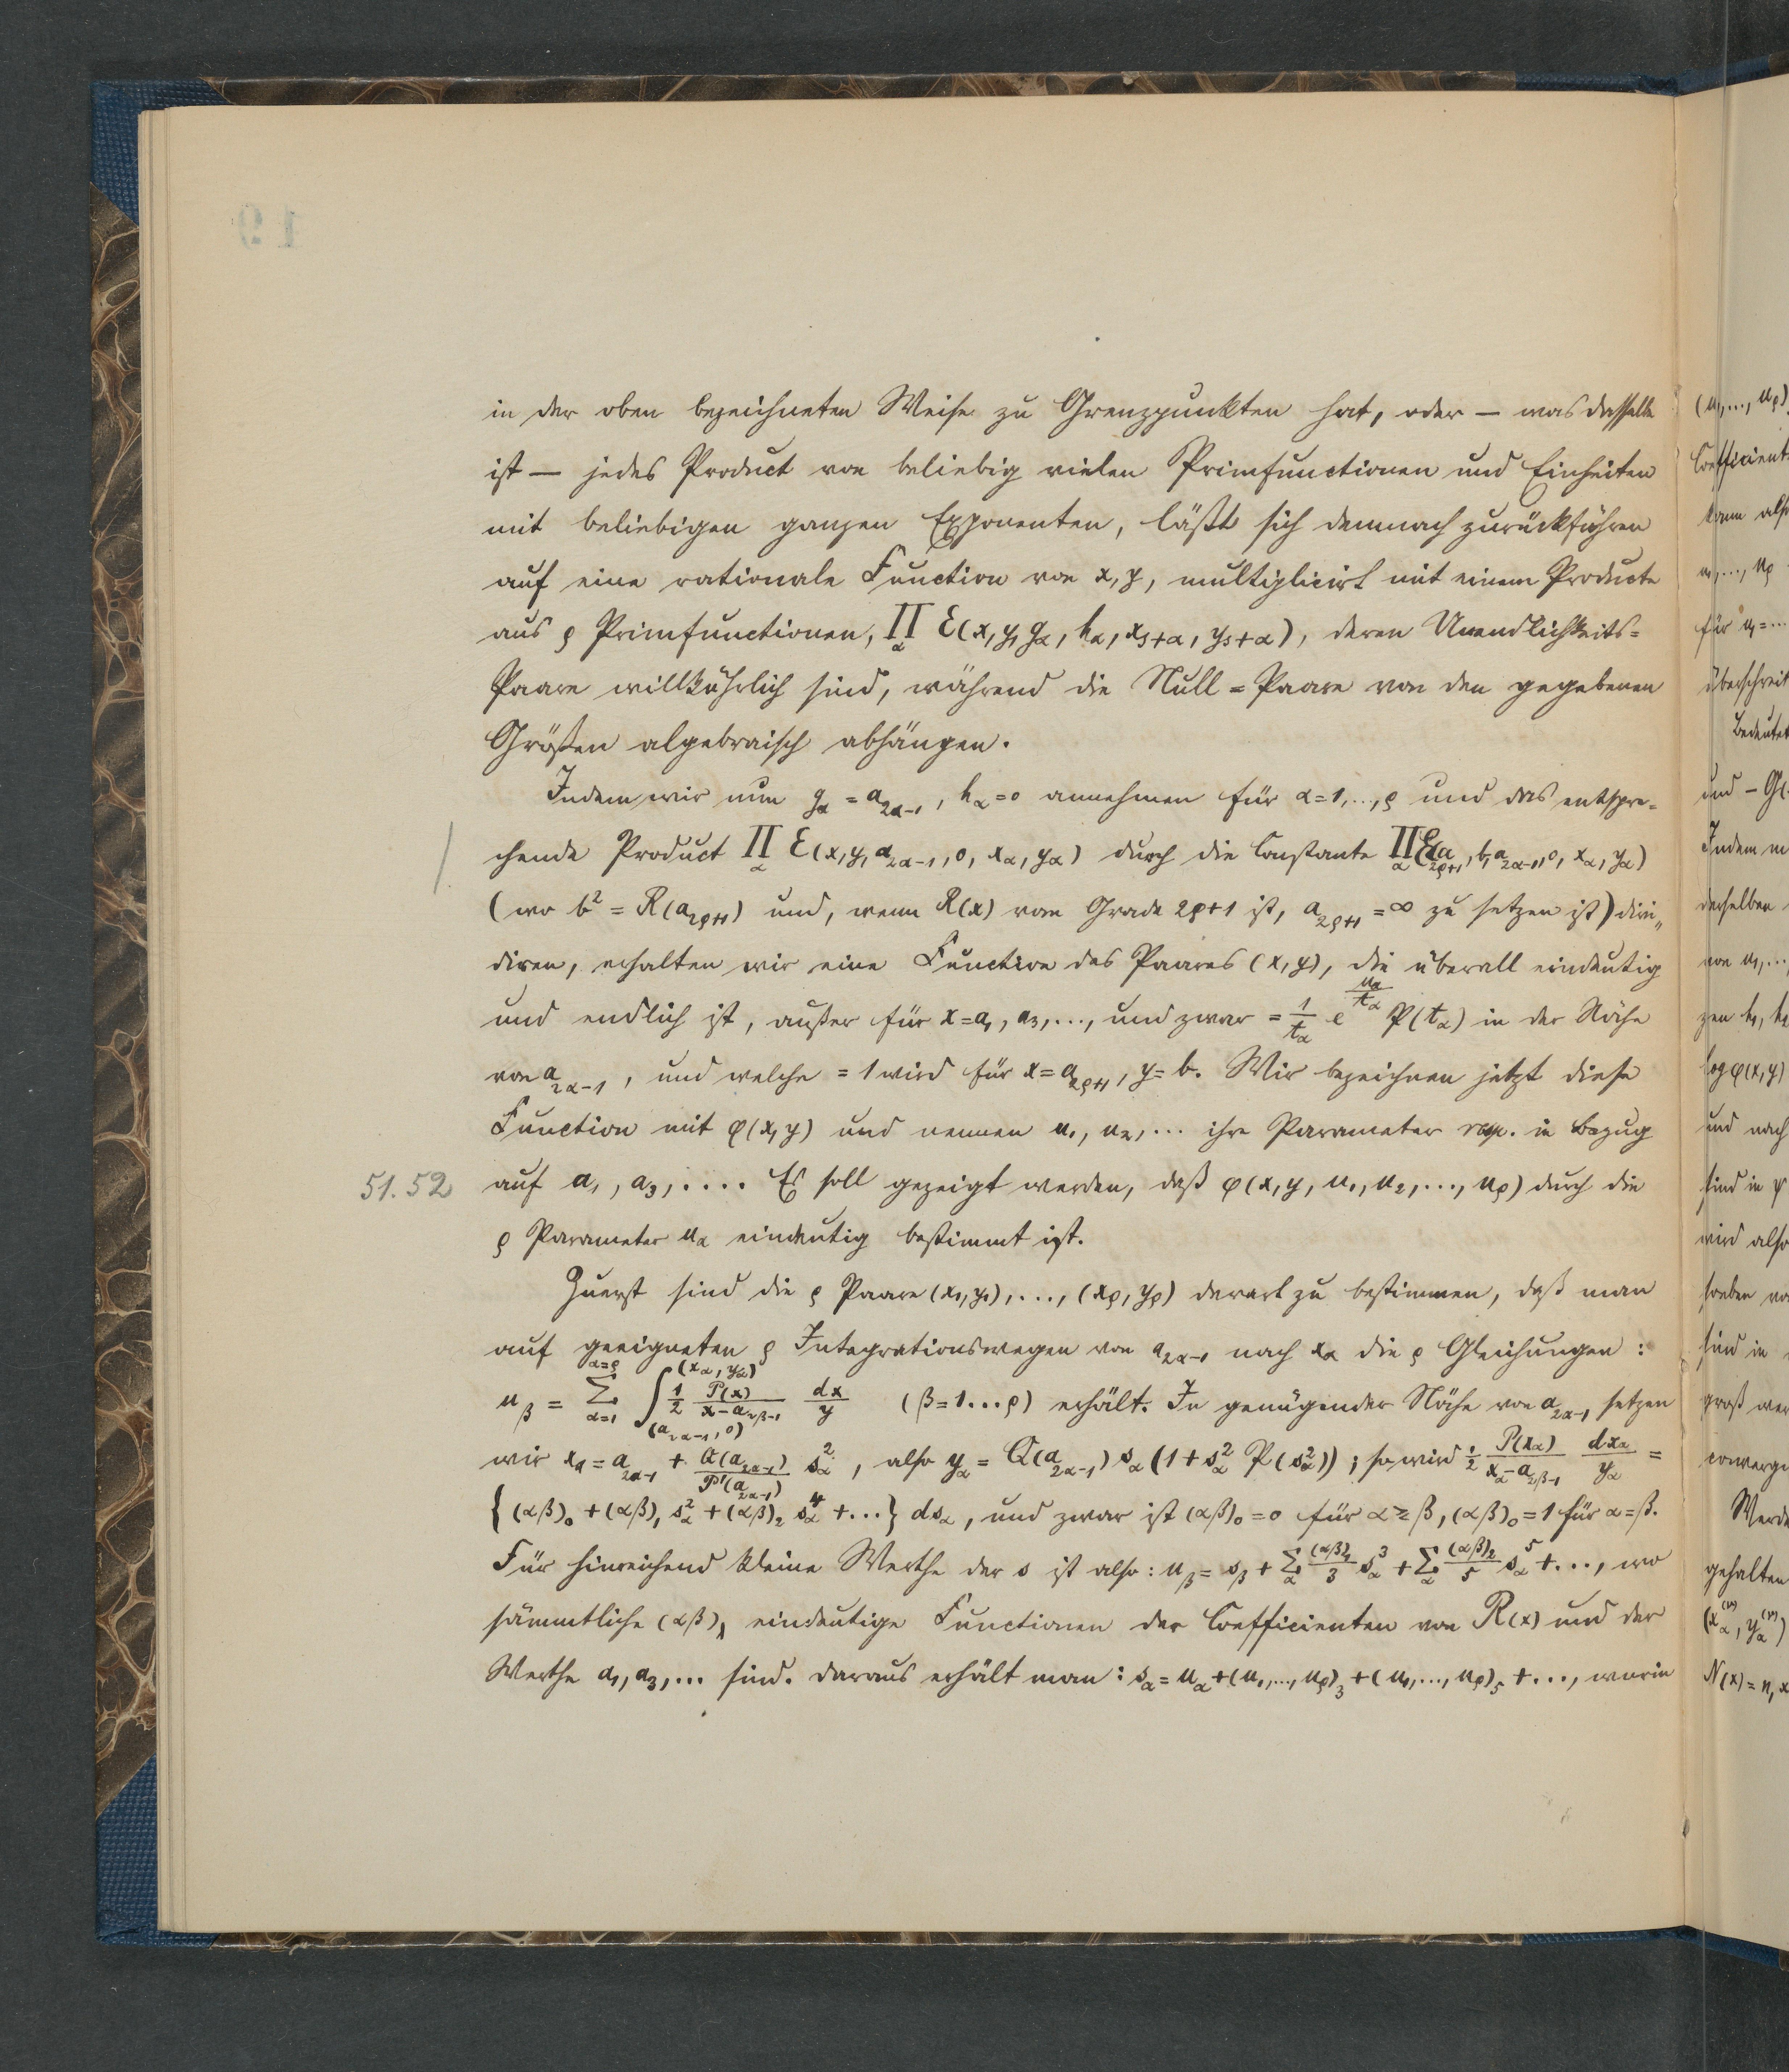 in der oben bezeichneten Weise zu Grenzpunkten hat, oder — was dasselbe
ist — jedes Product von beliebig vielen Primfunctionen und Einheiten
mit beliebigen ganzen Exponenten, läßt sich demnach zurückführen
auf eine rationale Function von x, y, multiplicirt mit einem Producte
aus ρ Primfunctionen, ∏_α ℰ(x, y, g_α, h_α, x_{s+α}, y_{s+α}), deren Unendlichkeits=
Paare willkührlich sind, während die Null=Paare von den gegebenen
Größen algebraisch abhängen.
Indem wir nun g_α = a_{2α-1}, h_α = 0 annehmen für α = 1, ..., ρ und das entspre=
chende Product ∏_α ℰ(x, y, a_{2α-1}, 0, x_α, y_α) durch die Constante ∏_α ℰ(a_{2ρ+1}, b, a_{2α-1}, 0, x_α, y_α)
(wo b² = R(a_{2ρ+1}) und, wenn R(x) vom Grade 2ρ+1 ist, a_{2ρ+1} = ∞ zu setzen ist) divi„
diren, erhalten wir eine Function des Paares (x, y), die überall eindeutig
und endlich ist, außer für x = a_1, a_3, ..., und zwar = 1/t_α e^{u_α/t_α} P(t_α) in der Nähe
von a_{2α-1}, und welche = 1 wird für x = a_{2ρ+1}, y = b. Wir bezeichnen jetzt diese
Function mit φ(x, y) und nennen u_1, u_2, ... ihre Parameter resp. in Bezug
51. 52 auf a_1, a_3, .... Es soll gezeigt werden, daß φ(x, y, u_1, u_2, ..., u_ρ) durch die
ρ Parameter u_α eindeutig bestimmt ist.
Zuerst sind die ρ Paare (x_1, y_1), ..., (x_ρ, y_ρ) derart zu bestimmen, daß man
auf geeigneten ρ Integrationswegen von a_{2α-1} nach x_α die ρ Gleichungen :
u_β = ∑_{α=1}^{α=ρ} ∫_{(a_{2α-1}, 0)}^{(x_α, y_α)} 1/2 P(x)/(x - a_{2β-1}) dx/y (β = 1...ρ) erhält. In genügender Nähe von a_{2α-1} setzen
wir x_α = a_{2α-1} + Q(a_{2α-1})/P'(a_{2α-1}) s_α², also y_α = Q(a_{2α-1}) s_α (1 + s_α² P(s_α²)) ; so wird 1/2 P(x_α)/(x_α - a_{2β-1}) dx_α/y_α =
{(αβ)_0 + (αβ)_1 s_α² + (αβ)_2 s_α⁴ + ...} ds_α, und zwar ist (αβ)_0 = 0 für α ≷ β, (αβ)_0 = 1 für α = β.
Für hinreichend kleine Werthe der s ist also : u_β = s_β + ∑_α (αβ)_1/3 s_α³ + ∑_α (αβ)_2/5 s_α⁵ + ..., wo
sämmtliche (αβ)_λ eindeutige Functionen der Coefficienten von R(x) und der
Werthe a_1, a_3, ... sind. Daraus erhält man : s_α = u_α + (u_1, ..., u_ρ)_3 + (u_1, ..., u_ρ)_5 + ..., worin